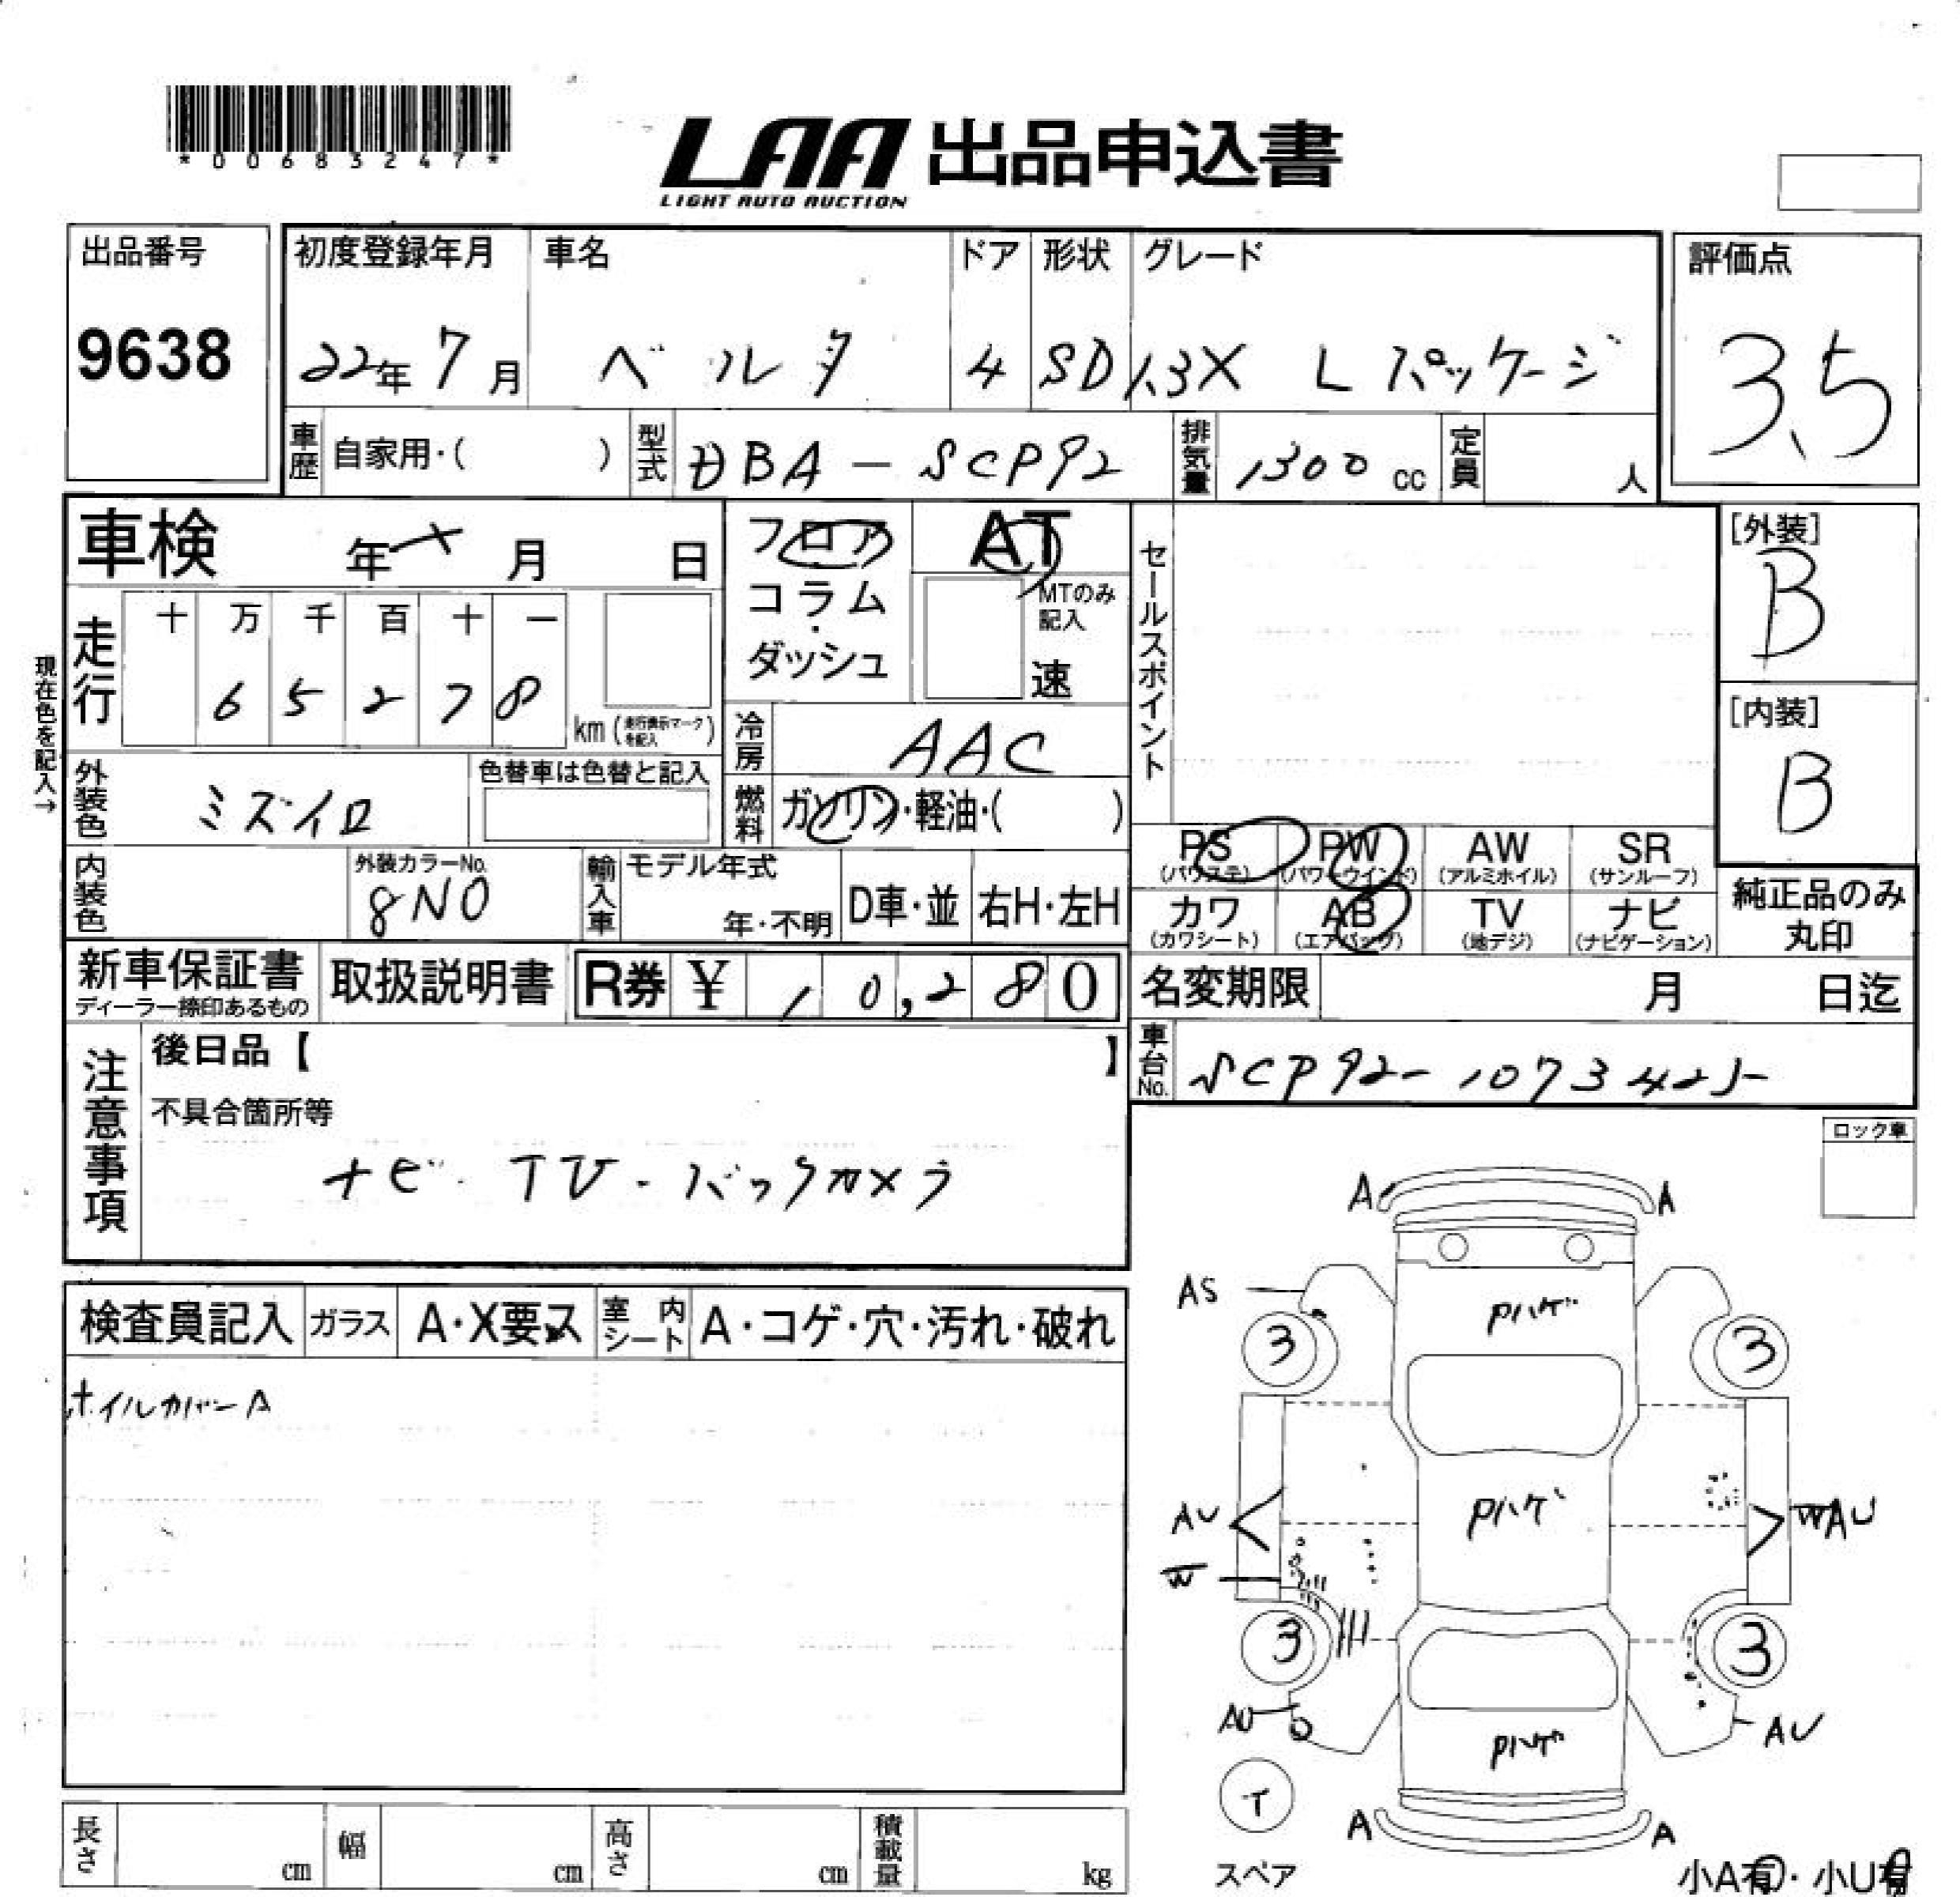 *00683247*
LAA 出品申込書
LIGHT AUTO AUCTION
出品番号
9638
初度登録年月
22年 7月
車名
ベルタ
ドア
4
形状
SD
グレード
1.3X L パッケージ
評価点
3.5
車歴 自家用・( )
型式 DBA-SCP92
排気量 1300 cc
定員 人
車検 年 × 月 日
フロア
コラム
・
ダッシュ
AT
MTのみ
記入
速
セールスポイント
[外装]
B
[内装]
B
現在色を記入→
走行
十 万 千 百 十 一
6 5 2 7 8
km (走行表示マークを記入)
冷房 AAC
外装色 ミズイロ
色替車は色替と記入
燃料 ガソリン・軽油・( )
PS
(パワステ)
PW
(パワーウインド)
AW
(アルミホイル)
SR
(サンルーフ)
カワ
(カワシート)
AB
(エアバッグ)
TV
(地デジ)
ナビ
(ナビゲーション)
純正品のみ
丸印
内装色
外装カラーNo.
8N0
輸入車
モデル年式
年・不明
D車・並
右H・左H
新車保証書
ディーラー捺印あるもの
取扱説明書
R券 ¥ 10,280
名変期限 月 日迄
車台No. SCP92-1073425
注意事項
後日品【 】
不具合箇所等
ナビ・TV・バックカメラ
ロック車
検査員記入
ガラス A・X要ス
室内シート A・コゲ・穴・汚れ・破れ
ホイルカバーA
A A
AS
Pハゲ
3 3
AU
Pハゲ
WAU
W
3 3
AU
Pハゲ
AU
T
スペア
A A
小A有・小U有
長さ cm
幅 cm
高さ cm
積載量 kg